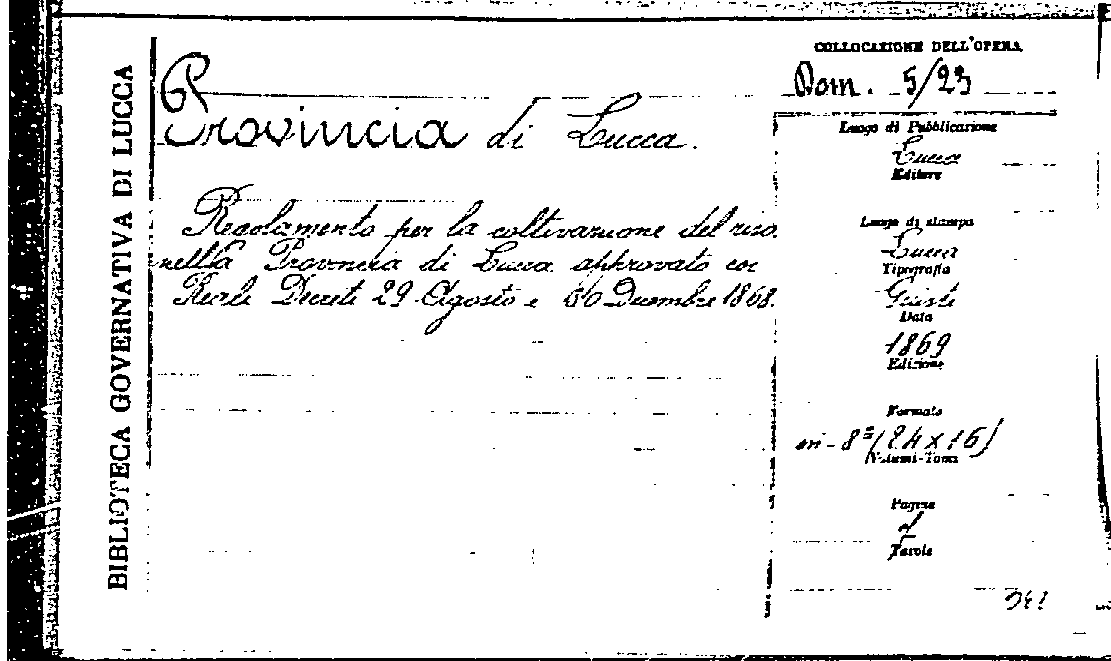 BIBLIOTECA GOVERNATIVA DI LUCCA
Provincia di Lucca.
Regolamento per la coltivazione del riso
nella Provincia di Lucca approvato con
Reali Decreti 29 Agosto e Dicembre 1868.
COLLOCAZIONE DELL'OPERA
Dom. 5/23
Luogo di Pubblicazione
Lucca
Editore
Luogo di stampa
Lucca
Tipografia
Giusti
Data
1869
Edizione
Formato
in-8º (24 x 16)
Volumi-Tomi
Pagine
Tavole